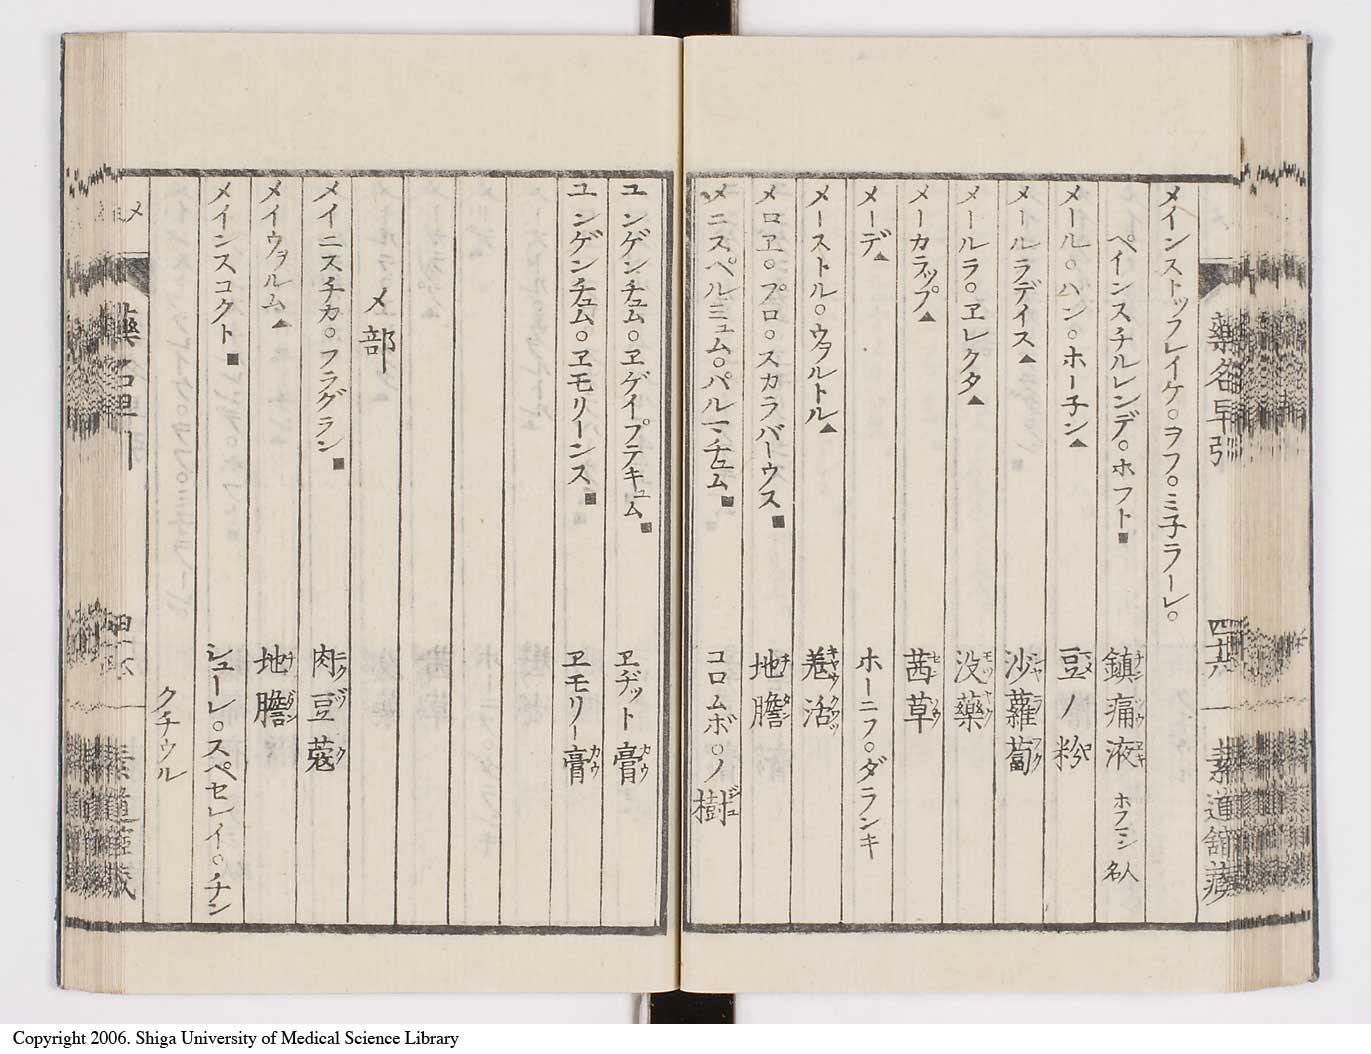 藥名早引
四十六
メインストッフレイケ○ヲフ○ミ子ラーレ○
ペインスチルレンデ○ホフト■
鎮痛液 ホフマン 名人
メール○ハン○ホー子ン▲
豆ノ粉
メールラデイス▲
沙蘿蔔
メールラ○ヱレクタ▲
没藥
メーカラップ▲
茜草
メーデ▲
ホーニフ○ダランキ
メーストル○ウヲルトル▲
地膽
メロヱ○プロ○スカラバーウス■
メニスペルミュム○パルマチュム■
コロムボ○ノ樹
ユンゲンチュム○ヱゲイプテキュム■
ヱヂット膏
ユンゲンチュム○ヱモリーンス■
ヱモリー膏
メ部
メイニスチカ○フラグラン■
肉豆蔻
メイウヲルム▲
地膽
メインスコクト■
シューレ○スペセレイ○チン
クチウル
メ
Copyright 2006. Shiga University of Medical Science Library